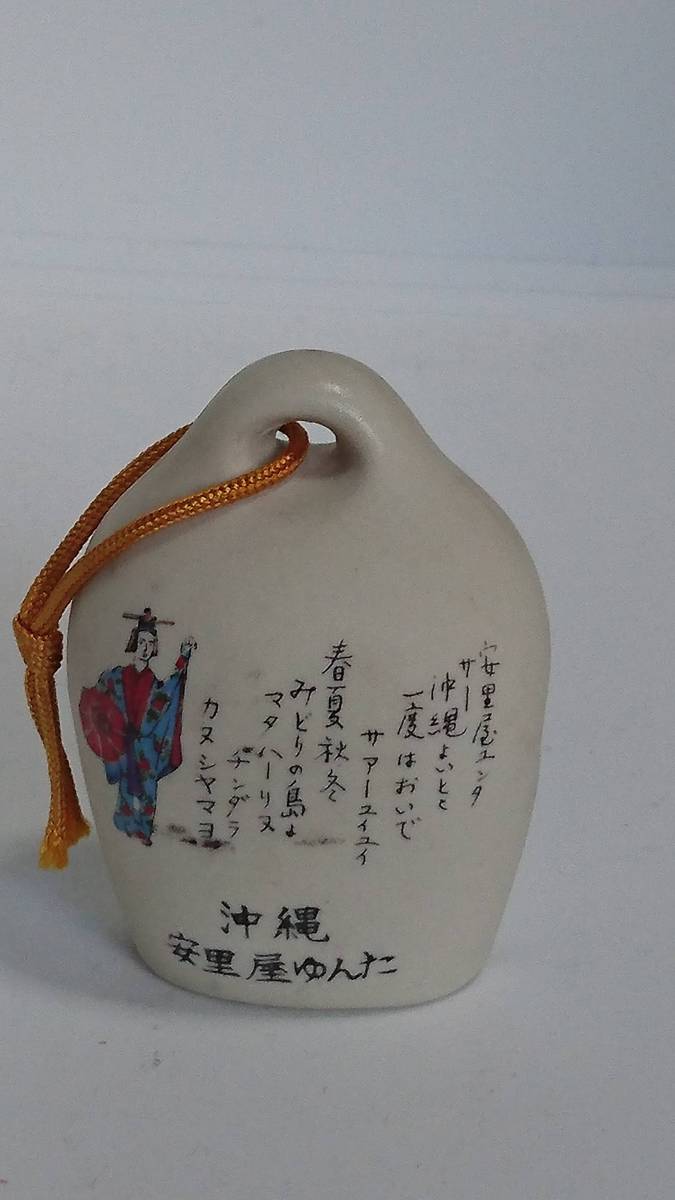 安里屋ユンタ
サー
沖縄よいとこ
一度はおいで
サアーユイユイ
春夏秋冬
みどりの島よ
マタハーリヌ
チンダラ
カヌシヤマヨ
沖縄
安里屋ゆんた